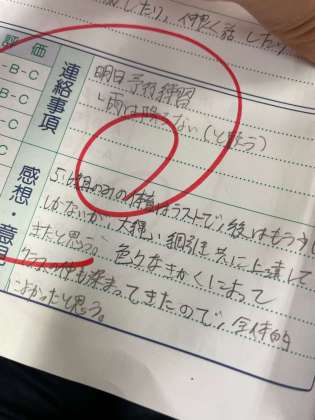 したり、大埋く話したり
評価
-B-C
-B-C
B-C
C
連絡事項
明日 予行練習
雨は降らない(と思う)
感想・意見
の体育はラストで、後はもう
しかないが、大埋い、綱引き共に上達して
きたと思う。色々なきかくによって
仲も深まってきたので、全体的
によかったと思う。